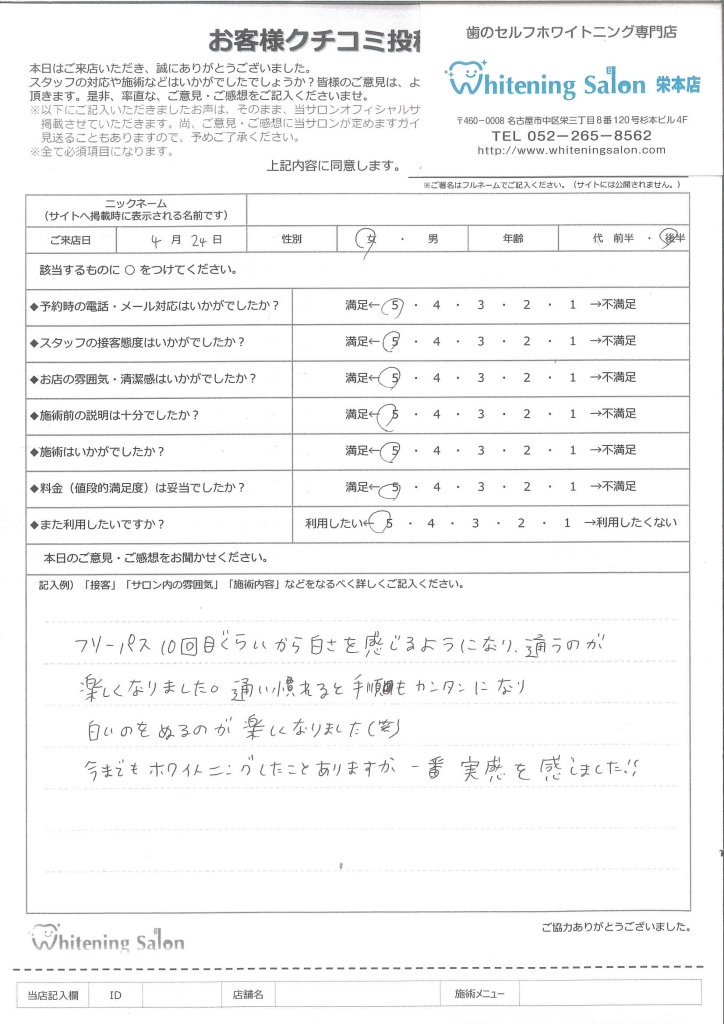 お客様クチコミ投稿
歯のセルフホワイトニング専門店
Whitening Salon 栄本店
〒460-0008 名古屋市中区栄三丁目8番120号杉本ビル4F
TEL 052-265-8562
http://www.whiteningsalon.com
本日はご来店いただき、誠にありがとうございました。
スタッフの対応や施術などはいかがでしたでしょうか？皆様のご意見は、よ
頂きます。是非、率直な、ご意見・ご感想をご記入くださいませ。
※以下にご記入いただきましたお声は、そのまま、当サロンオフィシャルサ
掲載させていただきます。尚、ご意見・ご感想に当サロンが定めますガイ
見送ることもありますので、予めご了承ください。
※全て必須項目になります。
上記内容に同意します。
※ご署名はフルネームでご記入ください。（サイトには公開されません。）
ニックネーム
（サイトへ掲載時に表示される名前です）
ご来店日 4月24日 性別 女 ・ 男 年齢 代 前半 ・ 後半
該当するものに ○ をつけてください。
◆予約時の電話・メール対応はいかがでしたか？ 満足← 5 ・ 4 ・ 3 ・ 2 ・ 1 →不満足
◆スタッフの接客態度はいかがでしたか？ 満足← 5 ・ 4 ・ 3 ・ 2 ・ 1 →不満足
◆お店の雰囲気・清潔感はいかがでしたか？ 満足← 5 ・ 4 ・ 3 ・ 2 ・ 1 →不満足
◆施術前の説明は十分でしたか？ 満足← 5 ・ 4 ・ 3 ・ 2 ・ 1 →不満足
◆施術はいかがでしたか？ 満足← 5 ・ 4 ・ 3 ・ 2 ・ 1 →不満足
◆料金（値段的満足度）は妥当でしたか？ 満足← 5 ・ 4 ・ 3 ・ 2 ・ 1 →不満足
◆また利用したいですか？ 利用したい← 5 ・ 4 ・ 3 ・ 2 ・ 1 →利用したくない
本日のご意見・ご感想をお聞かせください。
記入例）「接客」「サロン内の雰囲気」「施術内容」などをなるべく詳しくご記入ください。
フリーパス10回目ぐらいから白さを感じるようになり、通うのが
楽しくなりました。通い慣れると手順もカンタンになり
白いのをぬるのが楽しくなりました(笑)
今までもホワイトニングしたことありますが一番実感を感じました!!
Whitening Salon
ご協力ありがとうございました。
当店記入欄 ID 店舗名 施術メニュー